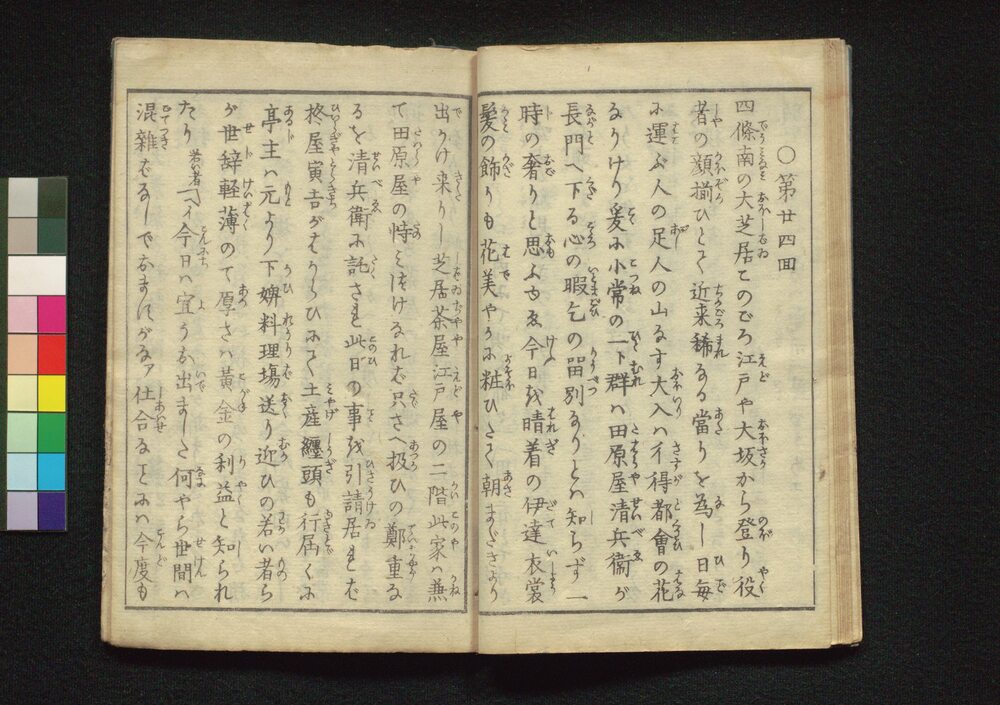 ○第廿四回
四條南の大芝居このごろ江戸や大坂から登り役
者の顔揃ひとて近来稀なる當りを為し日毎
に運ぶ人の足人の山なす大入は得都會の花
なりけり爰に小常の一ト群は田原屋清兵衞が
長門へ下る心の暇乞の留別なりとは知らず一
時の奢りと思ふゆゑ今日を晴着の伊達衣裳
髪の飾りも花美やかに粧ひたて朝まだきより
出かけ来りし芝居茶屋江戸屋の二階此家は兼
て田原屋の恃みつけなれば只さへ扱ひの鄭重な
るを清兵衛に託され此日の事を引請居れば
柊屋寅吉がはからひにて土産纏頭も行届くに
亭主は元より下婢料理塲送り迎ひの若い者ら
が世辞軽薄のて厚さは黄金の利益と知られ
たり 若い者「ヘイ今日は宜うお出ました何やら世間は
混雑はるしでおますがなァ仕合なことには今度も